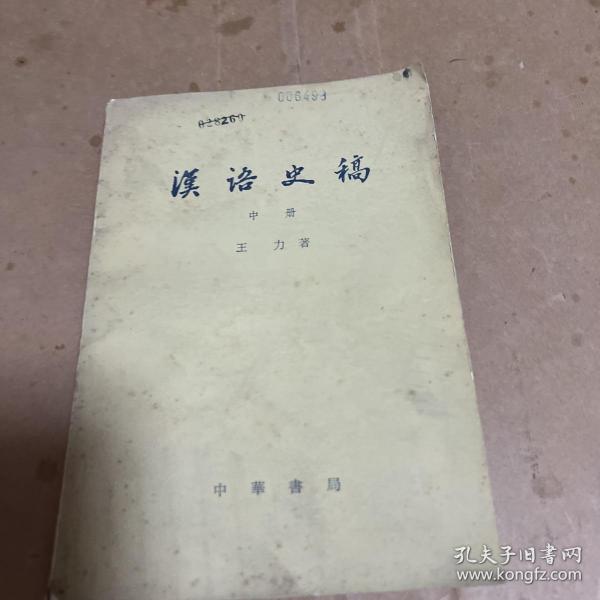 006493
漢语史稿
中册
王力著
中華書局
孔夫子旧书网
www.kongfz.com